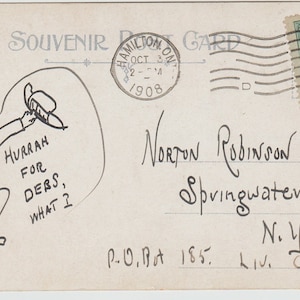 SOUVENIR POST CARD
HAMILTON, ONT
OCT 3
2 - PM
1908
D
HURRAH
FOR
DEBS,
WHAT !
NORTON ROBINSON
Springwater
N.Y
P.O.BOX 185. LIV. Co